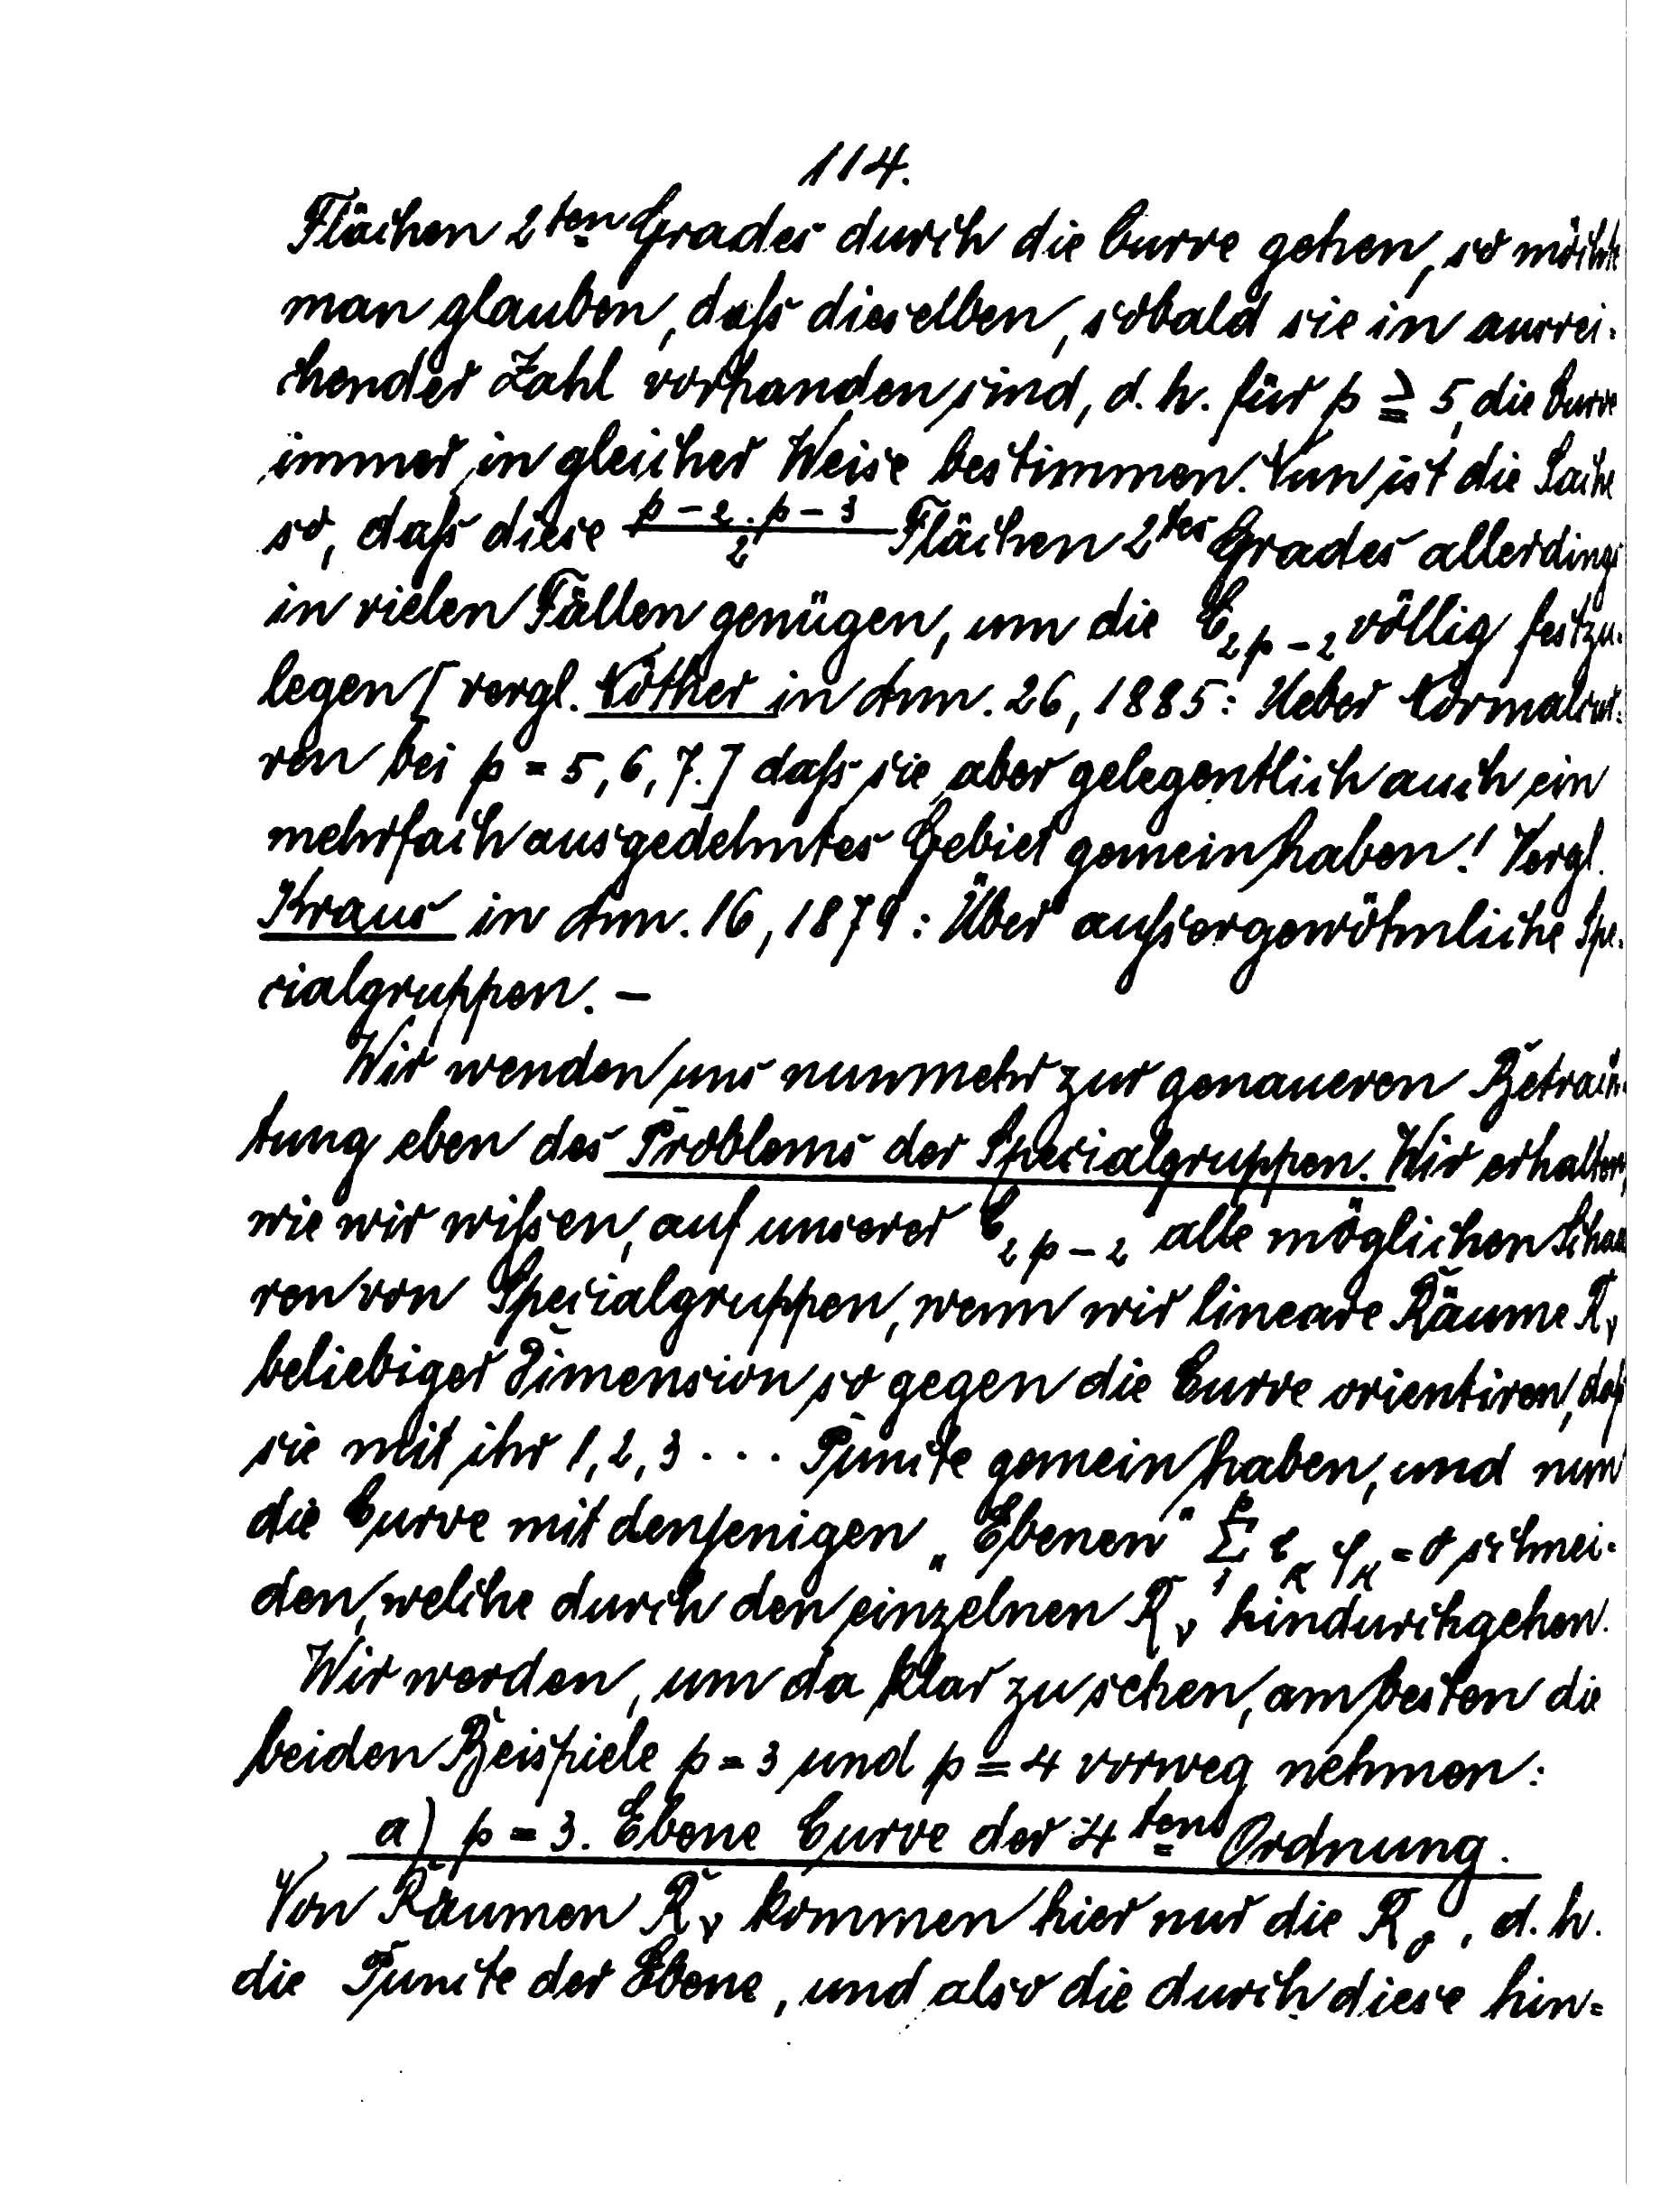 114.
Flächen 2ten Grades durch die Curve gehen, so möchte
man glauben, daß dieselben, sobald sie in ausrei-
chender Zahl vorhanden sind, d. h. für p ≧ 5, die Curve
immer in gleicher Weise bestimmen. Nun ist die Sache
so, daß diese (p-2 . p-3)/2 Flächen 2ter Grades allerdings
in vielen Fällen genügen, um die C_{2p-2} völlig festzu-
legen [vergl. Nöther in Ann. 26, 1885: Ueber Normalcur-
ven bei p = 5, 6, 7.] daß sie aber gelegentlich auch ein
mehrfach ausgedehntes Gebiet gemein haben! Vergl.
Kraus in Ann. 16, 1879: Über aussergewöhnliche Spe-
cialgruppen. –
Wir wenden uns nunmehr zur genaueren Betrach-
tung eben des Problems der Specialgruppen. Wir erhalten,
wie wir wißen, auf unserer C_{2p-2} alle möglichen Schaa-
ren von Specialgruppen, wenn wir lineare Räume R_ν
beliebiger Dimension so gegen die Curve orientiren, daß
sie mit ihr 1, 2, 3 ... Puncte gemein haben, und nun
die Curve mit denjenigen „Ebenen" Σ_1^p c_κ φ_κ = 0 schnei-
den, welche durch den einzelnen R_ν hindurchgehen.
Wir werden, um da klar zu sehen, am besten die
beiden Beispiele p = 3 und p = 4 vorweg nehmen:
a) p = 3. Ebene Curve der 4ten Ordnung.
Von Räumen R_ν kommen hier nur die R_0, d. h.
die Puncte der Ebene, und also die durch diese hin-